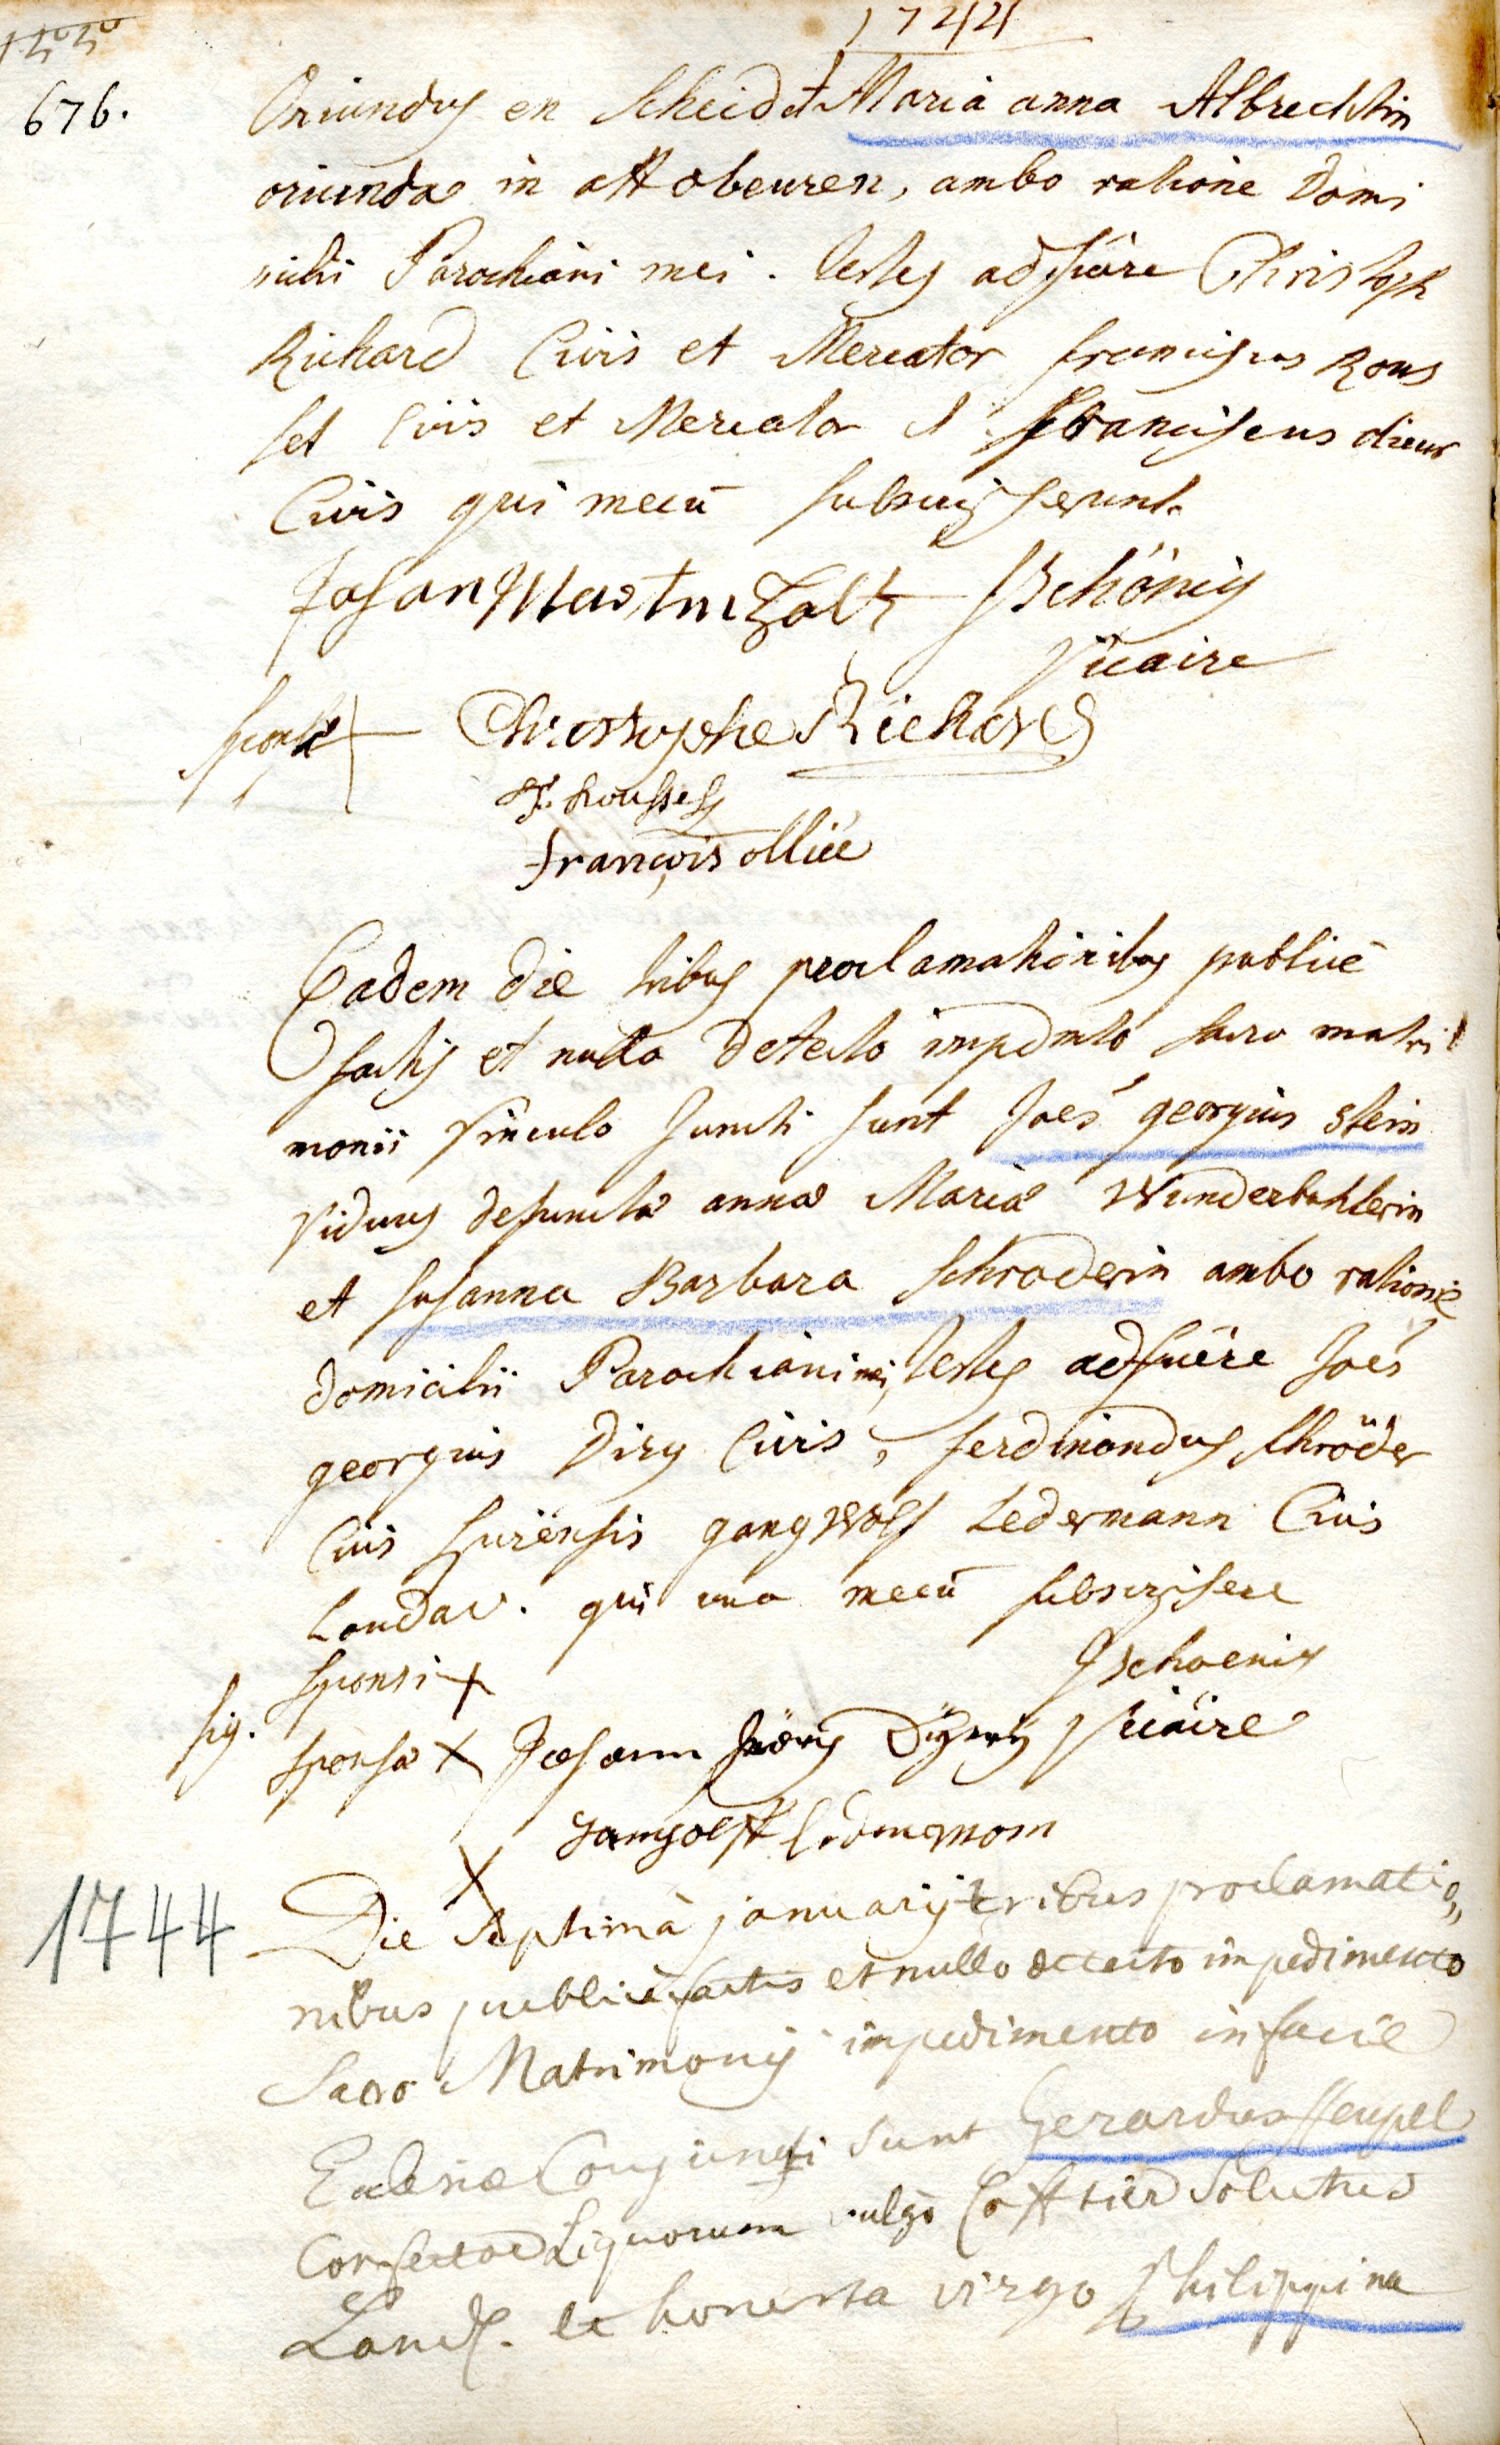 1744
676.
Oriundus en Scheid et Maria anna Albrechtin
oriunda in ottobeuren, ambo ratione Domi
cilii Parochiani mei. testes adfuére Christoph
Richard Civis et Mercator franciscus Rous
set Civis et Mercator et franciscus
Civis qui mecū subscripserunt.
Johan Martin Zoltz JBchönig
Vicaire
sponsæ Christophe Richard
F. Roussel
françois olliée
Eadem die tribus proclamationibus publicè
factis et nullo detecto impdmto sacro matri
monii vinculo juncti sunt Joes georgius Stein
viduus defunctæ annæ Mariæ Wunderbahlerin
et Susanna Barbara Schroderin ambo ratione
domicilii Parochiani mei, testes adfuére Joes
georgius Diry Civis, ferdinandus Schröder
Civis Spirensis gangwolf Ledermann Civis
Landav. qui una mecū subscripsere
Sponsi + JBchoenig
sig. Sponsæ x Johann Jörg Vicaire
gangolff
x
1744 Die septimà januarij tribus proclamatio
nibus publicè factis et nullo detecto impedimento
Sacro Matrimonij impedimento in facie
Ecclesiæ Conjuncti sunt Gerardus Heupel
Confector Liquorum vulgò Coffetier Solutus
Land. et honesta virgo Philippina